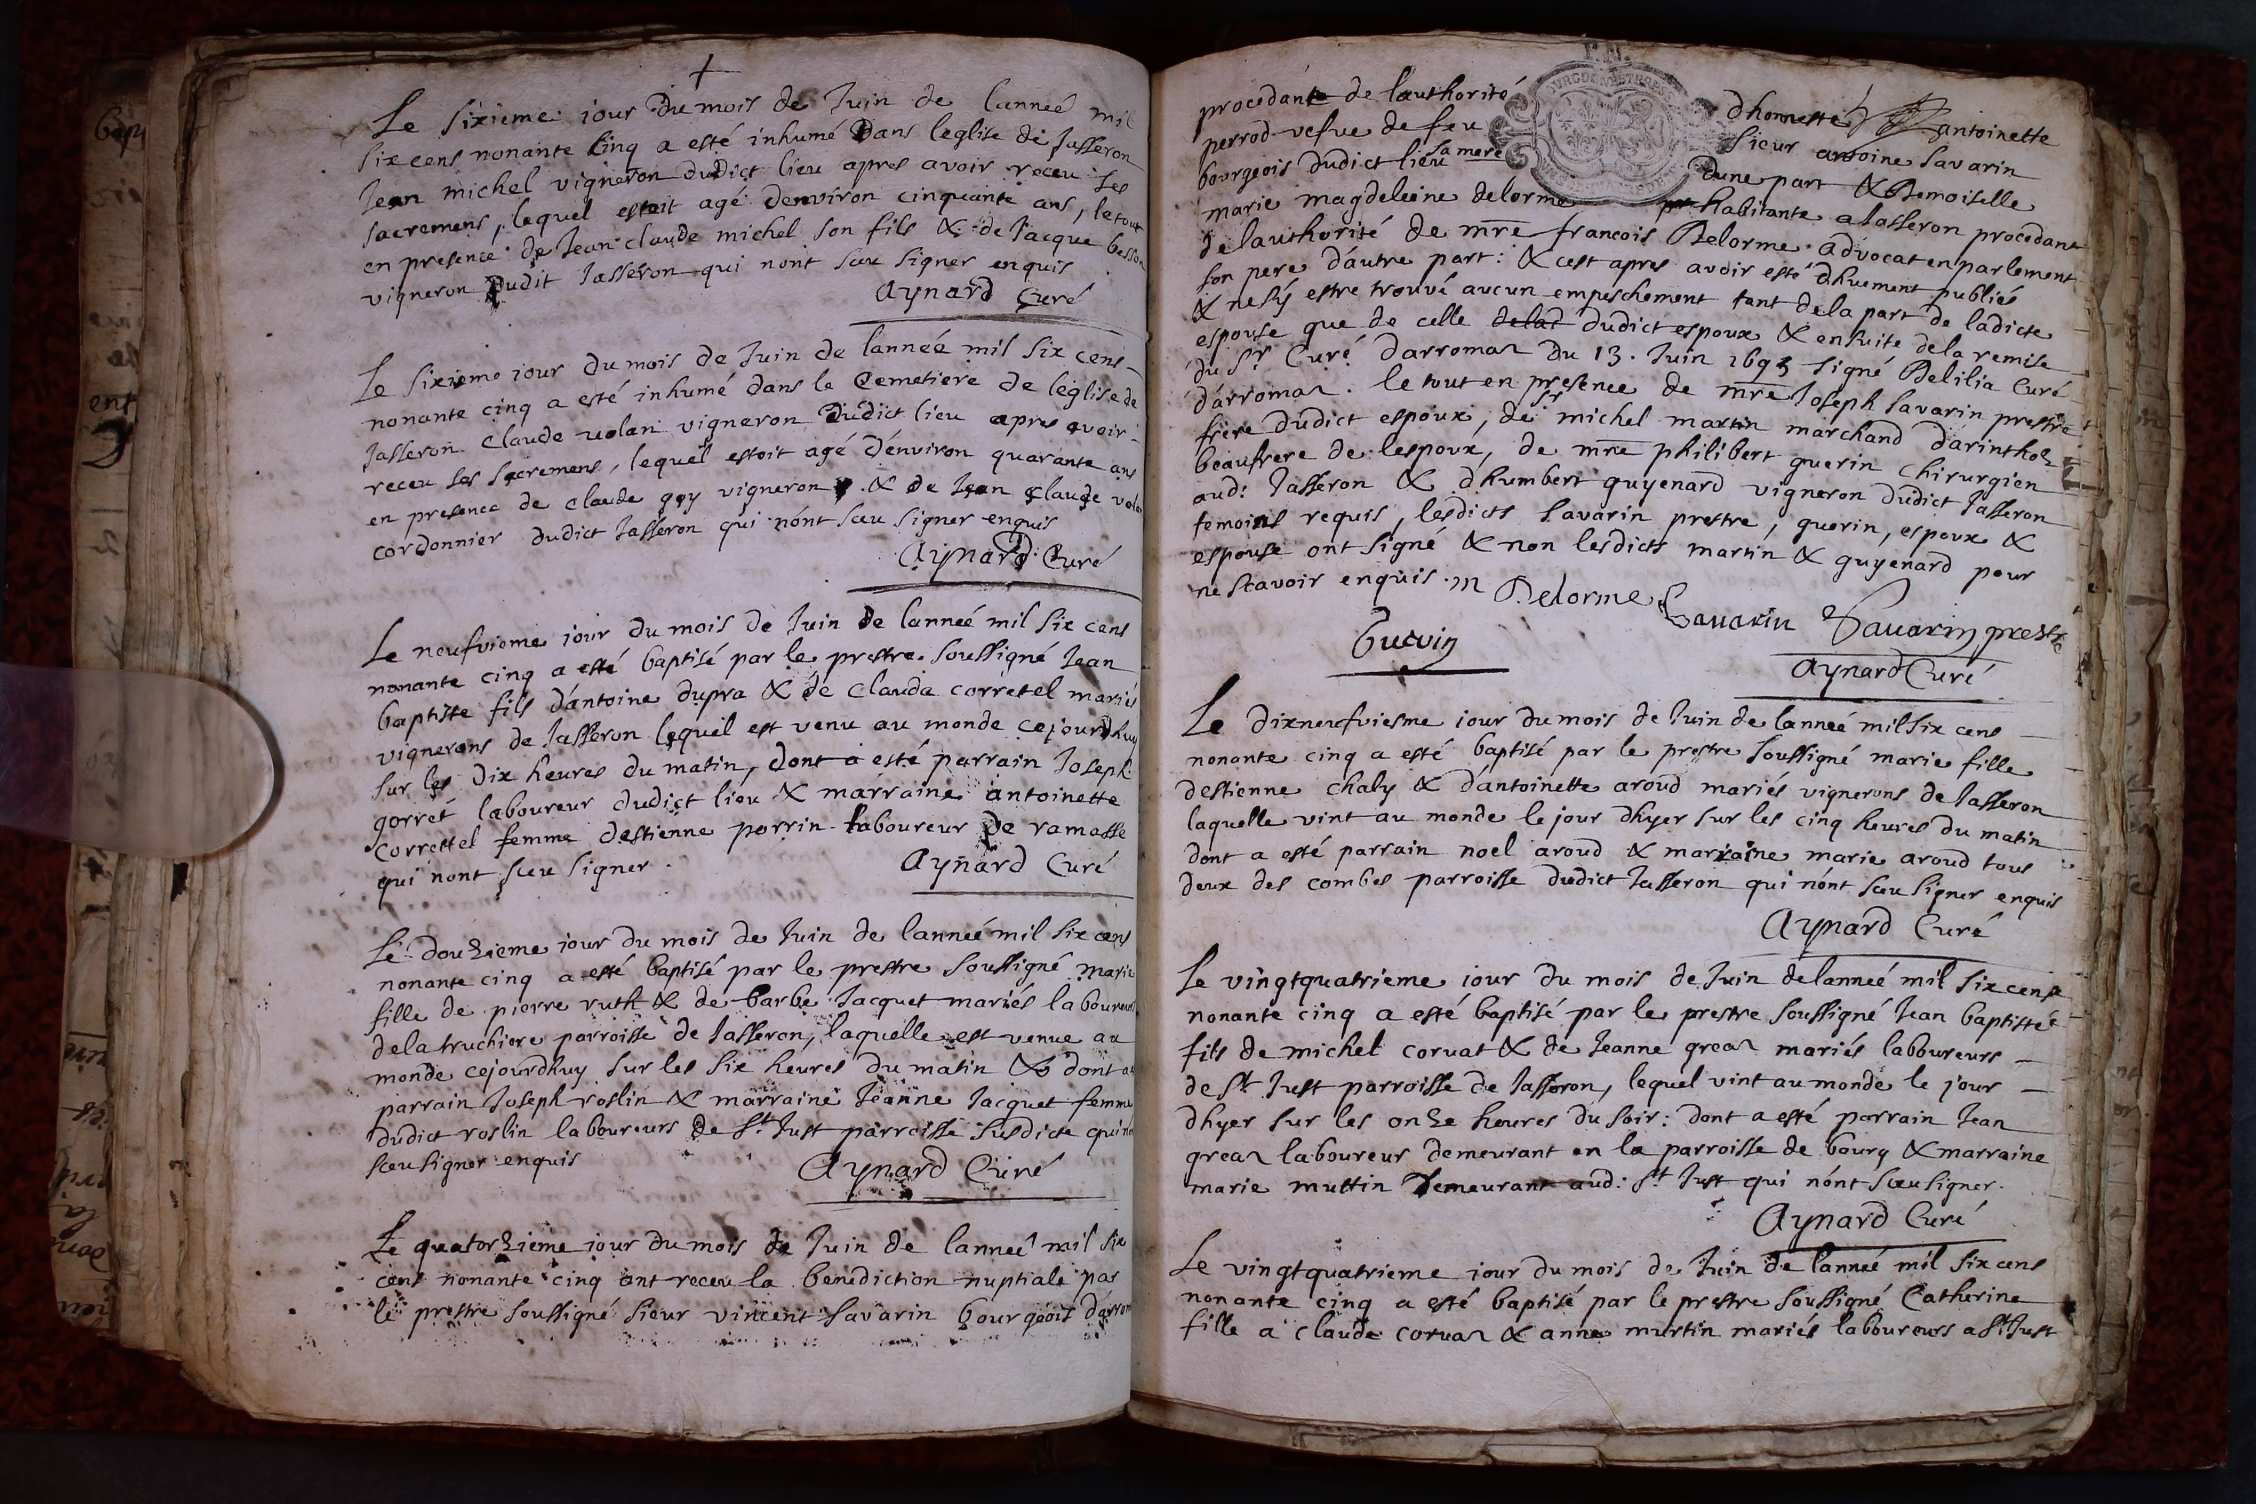 Le sixieme jour du mois de Juin de l'anneé mil
six cens nonante cinq a esté inhumé dans leglise de Jasseron
Jean michel vigneron dudict lieu apres avoir receu les
sacremens, lequel estoit agé denviron cinquante ans, letout
en presence de Jean claude michel son fils & de Jacque besson
vigneron dudit Jasseron qui nont sceu signer enquis
Aynard Curé
Le sixieme jour du mois de Juin de lanneé mil six cens
nonante cinq a esté inhumé dans le Cemetiere de léglise de
Jasseron Claude volan vigneron dudict lieu apres avoir
receu les sacremens, lequel estoit agé dénviron quarante ans
en presence de claude goy vigneron & de Jean claude volan
cordonnier dudict Jasseron qui nónt sceu signer enquis
Aynard Curé
Le neufvieme jour du mois de Juin de lanneé mil six cens
nonante cinq a esté baptisé par le prestre soussigné Jean
baptiste fils dántoine dupra & de Clauda corretel mariés
vignerons de Jasseron lequel est venu au monde cejourdhuy
sur les dix heures du matin, dont a esté parrain Joseph
gorret laboureur dudict lieu & marraine antoinette
Correttel femme destienne perrin laboureur de ramasse
qui nont sceu signer.
Aynard Curé
Le douzieme jour du mois de Juin de lanneé mil six cens
nonante cinq a esté baptisé par le prestre soussigné marie
fille de pierre ruth & de barbe Jacquet mariés laboureurs
dela truchiere parroisse de Jasseron, laquelle est venue au
monde cejourdhuy sur les six heures du matin & dont a
parrain Joseph roslin & marraine Jeanne Jacquet femme
dudict roslin laboureurs de St Just parroisse susdicte qui
sceu signer enquis
Aynard Curé
Le quatorzieme jour du mois de Juin de lanneé mil six
cens nonante cinq ont receu la benediction nuptiale par
le prestre soussigné sieur vincent savarin bourgeois
procedante de lauthorité dhonneste antoinette
perrod vefve de feu sieur antoine savarin
bourgeois dudict lieu sa mere dune part & Demoiselle
marie magdeleine delorme habitante a Jasseron procedant
de lauthorité de mre francois Delorme advocat en parlement
son pere dáutre part: & cest apres avoir esté dhuement publiés
& nesy estre trouvé aucun empeschement tant dela part de ladicte
espouse que de celle delad dudict espoux & ensuite dela remise
du Sr Curé darromaz du 13. Juin 1695 signé Delilia Curé
dárromaz. le tout en presence de mre Joseph savarin prestre
frere dudict espoux, de sr michel martin marchand dárinthoz
beaufrere de lespoux, de mre philibert guerin chirurgien
aud: Jasseron & dhumbert guyenard vigneron dudict Jasseron
temoins requis, lesdicts savarin prestre, guerin, espoux &
espouse ont signé & non lesdicts martin & guyenard pour
ne scavoir enquis. m Delorme Savarin Savarin prestre
Guerin
Aynard Curé
Le dixneufviesme jour du mois de Juin de lanneé mil six cens
nonante cinq a esté baptisé par le prestre soussigné marie fille
destienne chaly & dántoinette aroud mariés vignerons de Jasseron
laquelle vint au monde le jour dhyer sur les cinq heures du matin
dont a esté parrain noel aroud & marraine marie aroud tous
deux des combes parroisse dudict Jasseron qui nónt sceu signer enquis
Aynard Curé
Le vingtquatrieme jour du mois de Juin delanneé mil six cens
nonante cinq a esté baptisé par le prestre soussigné Jean baptiste
fils de michel coruat & de Jeanne greaz mariés laboureurs
de St Just parroisse de Jasseron, lequel vint au monde le jour
dhyer sur les onze heures du soir: dont a esté parrain Jean
greaz laboureur demeurant en la parroisse de bourg & marraine
marie muttin demeurant aud: St Just qui nónt sceu signer.
Aynard Curé
Le vingtquatrieme jour du mois de Juin de lanneé mil six cens
nonante cinq a esté baptisé par le prestre soussigné Catherine
fille a claude coruaz & anne muttin mariés laboureurs a St Just